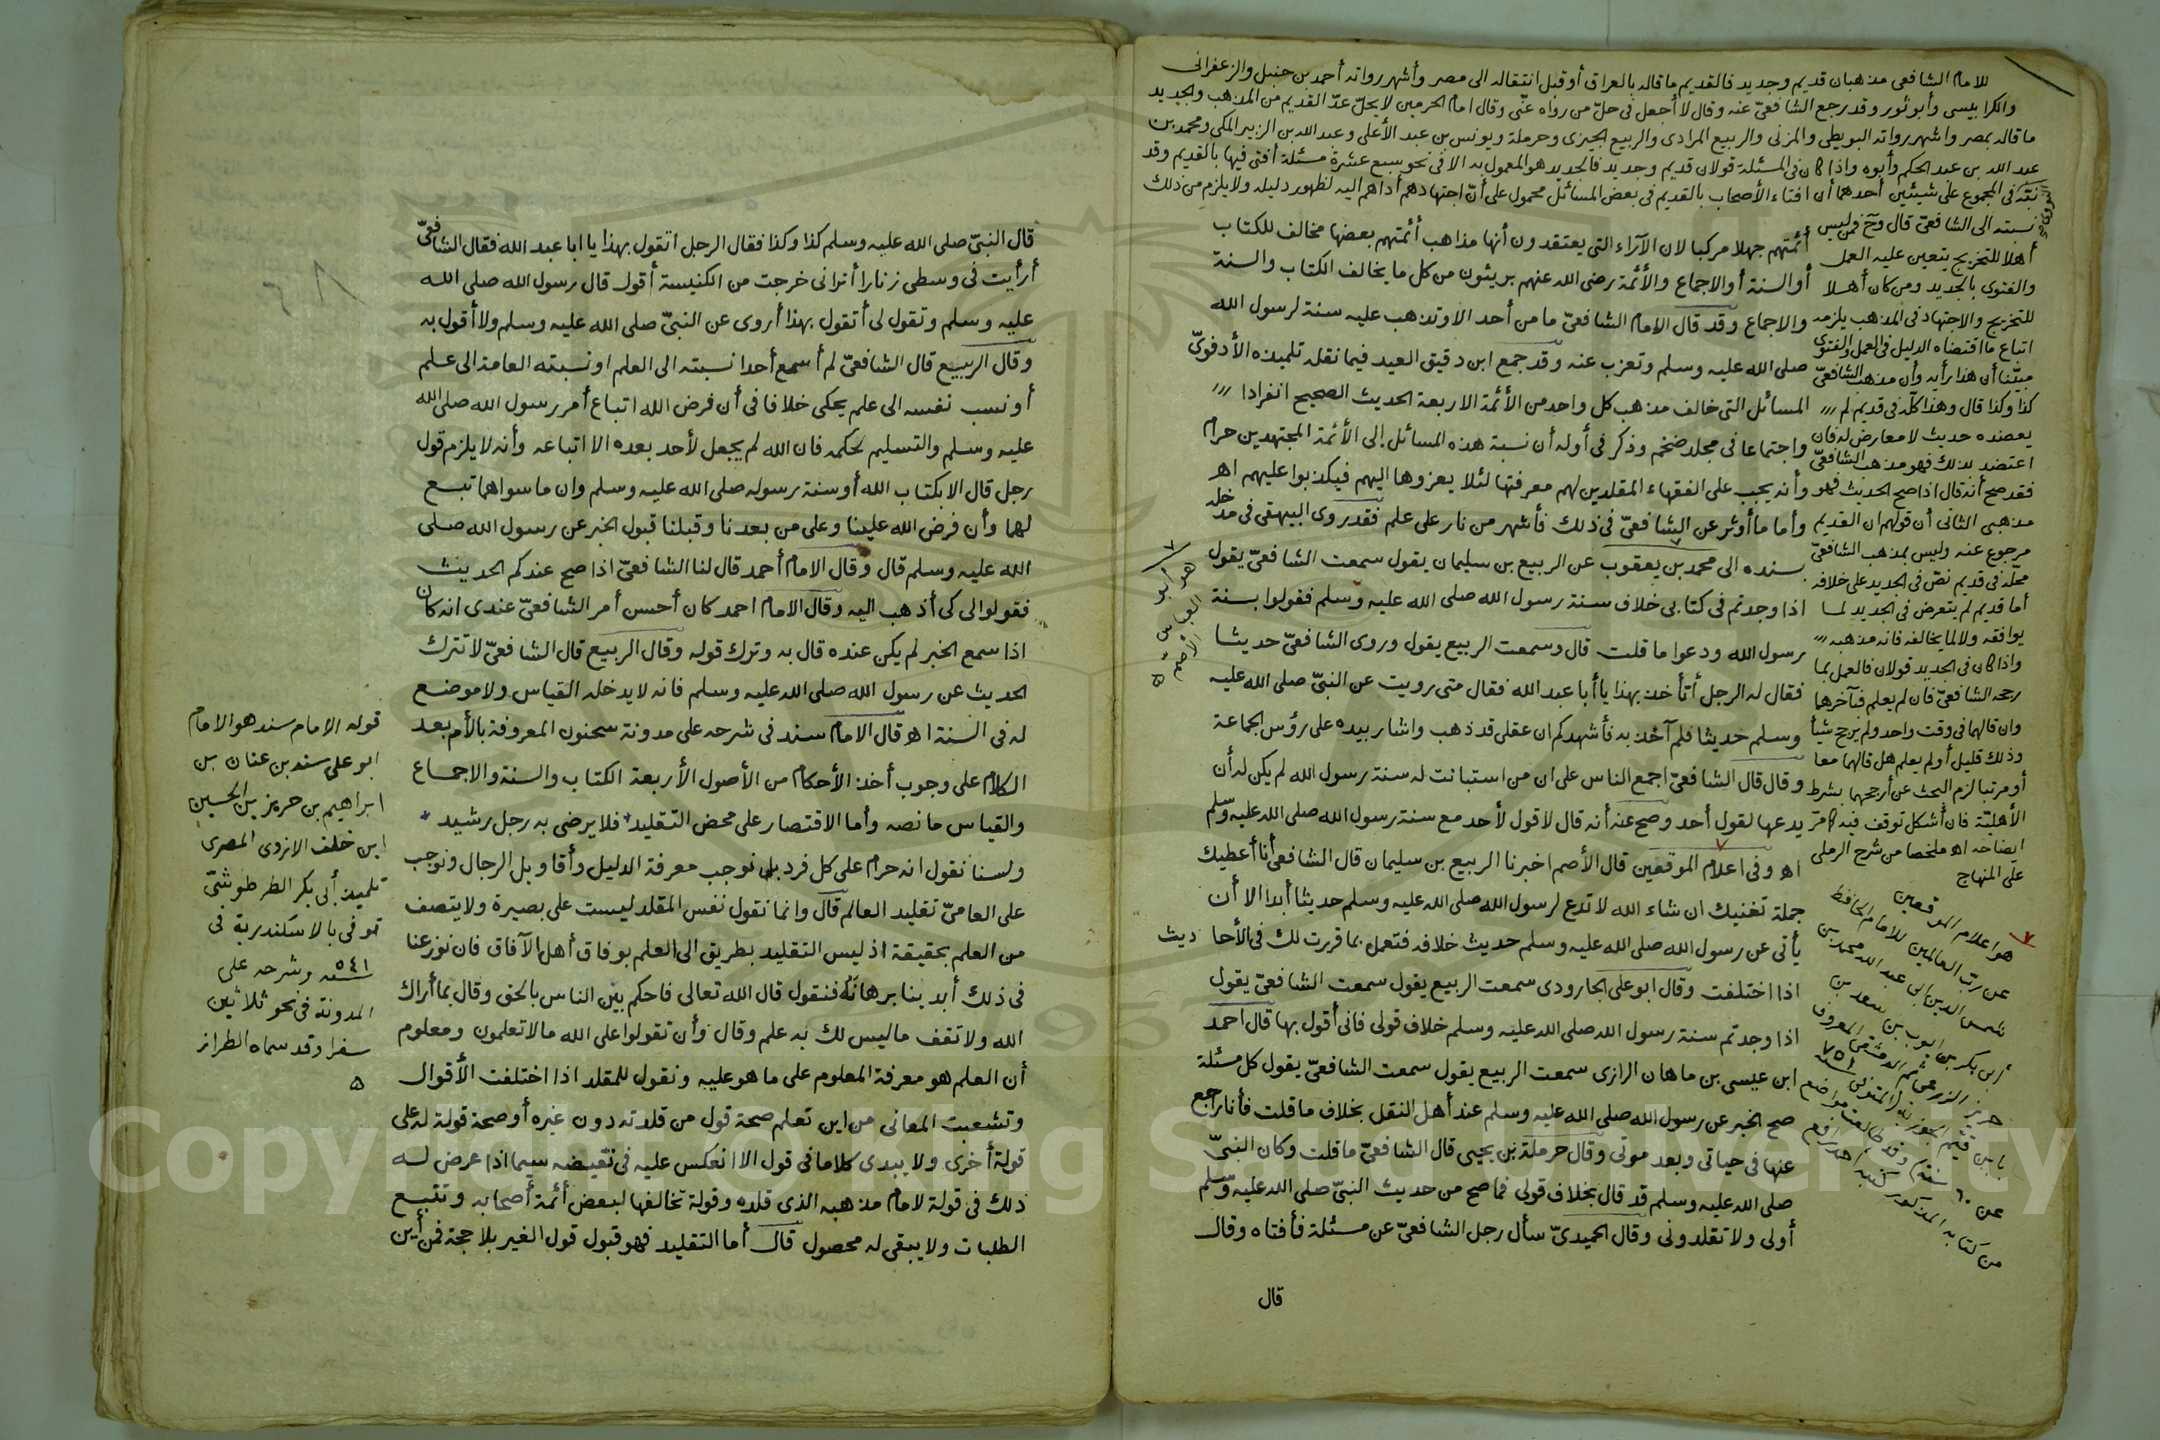 للامام الشافعى مذهبان قديم وجديد فالقديم ما قاله بالعراق أو قبل انتقاله الى مصر وأشهر رواته أحمد بن حنبل والزعفرانى
والكرابيسى وأبو ثور وقد رجع الشافعىّ عنه وقال لا أجعل فى حلّ من رواه عنّى وقال امام الحرمين لا يحلّ عدّ القديم من المذهب والجديد
ما قاله بمصر واشهر رواته البويطى والمزنى والربيع المرادى والربيع الجيزى وحرملة ويونس بن عبد الأعلى وعبد الله بن الزبير المكى ومحمد بن
عبد الله بن عبد الحكم وأبوه واذا كان فى المسئلة قولان قديم وجديد فالجديد هو المعمول به الا فى نحو سبع عشرة مسئلة أفتى فيها بالقديم وقد
نبّه فى المجموع على شيئين أحدهما أن افتاء الأصحاب بالقديم فى بعض المسائل محمول على أنّ اجتهادهم أداهم اليه لظهور دليله ولا يلزم من ذلك
نسبته الى الشافعىّ قال وح فمن ليس
أهلا للتخريج يتعين عليه العمل
والفتوى بالجديد ومن كان أهلا
للتخريج والاجتهاد فى المذهب يلزمه
اتباع ما اقتضاه الدليل فى العمل والفتوى
مبيّنا أن هذا رأيه وأن مذهب الشافعىّ
كذا وكذا قال وهذا كلّه فى قديم لم
يعضده حديث لا معارض له فان
اعتضد بذلك فهو مذهب الشافعىّ
فقد صح أنه قال اذا صح الحديث فهو
مذهبى الثانى أن قولهم ان القديم
مرجوع عنه وليس بمذهب الشافعىّ
محلّه فى قديم نصّ فى الجديد على خلافه
أما قديم لم يتعرض فى الجديد لما
يوافقه ولا لما يخالفه فانه مذهبه
واذا كان فى الجديد قولان فالعمل بما
رجحه الشافعىّ فان لم يعلم فبآخرهما
وان قالهما فى وقت واحد ولم يرجح شيأ
وذلك قليل أو لم يعلم هل قالهما معا
أو مرتبا لزم البحث عن أرجحهما بشرط
الأهليّة فان أشكل توقف فيه كما مرّ
ايضاحه اه ملخصا من شرح الرملى
على المنهاج
أئمتهم جهلا مركبا لان الآراء التى يعتقدون أنها مذاهب أئمتهم بعضها مخالف للكتاب
أو السنة أو الاجماع والأئمة رضى الله عنهم بريئون من كل ما يخالف الكتاب والسنة
والاجماع وقد قال الامام الشافعىّ ما من أحد الا وتذهب عليه سنة لرسول الله
صلى الله عليه وسلم وتعزب عنه وقد جمع ابن دقيق العيد فيما نقله تلميذه الأدفوىّ
المسائل التى خالف مذهب كل واحد من الأئمة الاربعة الحديث الصحيح انفرادا
واجتماعا فى مجلد ضخم وذكر فى أوله أن نسبة هذه المسائل إلى الأئمة المجتهدين حرام
وأنه يجب على الفقهاء المقلدين لهم معرفتها لئلا يعزوها اليهم فيكذبوا عليهم اه
وأما ما أوثر عن الشافعىّ فى ذلك فأشهر من نار على علم فقد روى البيهقى فى مدخله
بسنده الى محمد بن يعقوب عن الربيع بن سليمان يقول سمعت الشافعىّ يقول
اذا وجدتم فى كتابى خلاف سنة رسول الله صلى الله عليه وسلم فقولوا بسنة
رسول الله ودعوا ما قلت قال وسمعت الربيع يقول وروى الشافعىّ حديثا
فقال له الرجل أتأخذ بهذا يا أبا عبد الله فقال متى رويت عن النبىّ صلى الله عليه
وسلم حديثا فلم آخذ به فأشهدكم ان عقلى قد ذهب واشار بيده على رؤس الجماعة
وقال قال الشافعىّ اجمع الناس على ان من استبانت له سنة رسول الله لم يكن له أن
يدعها لقول أحد وصح عنه أنه قال لا قول لأحد مع سنة رسول الله صلى الله عليه وسلم
اه وفى اعلام الموقعين قال الأصم اخبرنا الربيع بن سليمان قال الشافعى أنا أعطيك
جملة تغنيك ان شاء الله لا تدع لرسول الله صلى الله عليه وسلم حديثا أبدا الا أن
يأتى عن رسول الله صلى الله عليه وسلم حديث خلافه فتعمل بما قررت لك فى الأحاديث
اذا اختلفت وقال ابو على الجارودى سمعت الربيع يقول سمعت الشافعىّ يقول
اذا وجدتم سنة رسول الله صلى الله عليه وسلم خلاف قولى فانى أقول بها قال احمد
ابن عيسى بن ماهان الرازى سمعت الربيع يقول سمعت الشافعىّ يقول كل مسئلة
صح الخبر عن رسول الله صلى الله عليه وسلم عند أهل النقل بخلاف ما قلت فأنا راجع
عنها فى حياتى وبعد موتى وقال حرملة بن يحيى قال الشافعىّ ما قلت وكان النبىّ
صلى الله عليه وسلم قد قال بخلاف قولى فما صح من حديث النبىّ صلى الله عليه وسلم
أولى ولا تقلدونى وقال الحميدىّ سأل رجل الشافعىّ عن مسئلة فأفتاه وقال
قال
هو ابو
العباس
الأصمّ
هو اعلام الموقعين
عن رب العالمين للامام الحافظ
شمس الدين ابى عبد الله محمد بن
أبى بكر بن ايوب بن سعد بن
حريز الزرعى ثم الدمشقى المعروف
بابن قيّم الجوزية المتوفى ٧٥١
قال النبىّ صلى الله عليه وسلم كذا وكذا فقال الرجل اتقول بهذا يا ابا عبد الله فقال الشافعىّ
أرأيت فى وسطى زنارا أترانى خرجت من الكنيسة أقول قال رسول الله صلى الله
عليه وسلم وتقول لى أتقول بهذا أروى عن النبىّ صلى الله عليه وسلم ولا أقول به
وقال الربيع قال الشافعىّ لم أسمع أحدا نسبته الى العلم او نسبته العامة الى علم
أو نسب نفسه الى علم يحكى خلافا فى أن فرض الله اتباع أمر رسول الله صلى الله
عليه وسلم والتسليم لحكمه فان الله لم يجعل لأحد بعده الا اتباعه وأنه لا يلزم قول
رجل قال الا بكتاب الله أو سنة رسوله صلى الله عليه وسلم وان ما سواهما تبع
لهما وأن فرض الله علينا وعلى من بعدنا وقبلنا قبول الخبر عن رسول الله صلى
الله عليه وسلم قال وقال الامام أحمد قال لنا الشافعىّ اذا صح عندكم الحديث
فقولوا لى كى أذهب اليه وقال الامام احمد كان أحسن أمر الشافعىّ عندى انه كان
اذا سمع الخبر لم يكن عنده قال به وترك قوله وقال الربيع قال الشافعىّ لا تترك
الحديث عن رسول الله صلى الله عليه وسلم فانه لا يدخله القياس ولا موضع
له فى السنة اه قال الامام سند فى شرحه على مدونة سحنون المعروفة بالأم بعد
الكلام على وجوب أخذ الأحكام من الأصول الأربعة الكتاب والسنة والاجماع
والقياس ما نصه وأما الاقتصار على محض التقليد فلا يرضى به رجل رشيد
ولسنا نقول انه حرام على كل فرد بل نوجب معرفة الدليل وأقاويل الرجال ونوجب
على العامىّ تقليد العالم قال وانما نقول نفس المقلد ليست على بصيرة ولا يتصف
من العلم بحقيقة اذ ليس التقليد بطريق الى العلم بوفاق أهل الآفاق فان نوزعنا
فى ذلك أبدينا برهانه فنقول قال الله تعالى فاحكم بين الناس بالحق وقال بما أراك
الله ولا تقف ما ليس لك به علم وقال وأن تقولوا على الله ما لا تعلمون ومعلوم
أن العلم هو معرفة المعلوم على ما هو عليه ونقول للمقلد اذا اختلفت الأقوال
وتشعبت المعانى من اين تعلم صحة قول من قلدته دون غيره أو صحة قولة له على
قولة أخرى ولا يبدى كلاما فى قول الا انعكس عليه فى نقيضه سيما اذا عرض له
ذلك فى قولة لامام مذهبه الذى قلده وقولة تخالفها لبعض أئمة أصحابه وتتبع
الطلبات ولا يبقى له محصول قال أما التقليد فهو قبول قول الغير بلا حجة فمن أين
قوله الامام سند هو الامام
ابو على سند بن عنان بن
ابراهيم بن حريز بن الحسين
ابن خلف الازدى المصرى
تلميذ أبى بكر الطرطوشىّ
توفى بالاسكندرية فى
سنة ٥٤١ وشرحه على
المدونة فى نحو ثلاثين
سفرا وقد سماه الطراز
Copyright © King Saud University